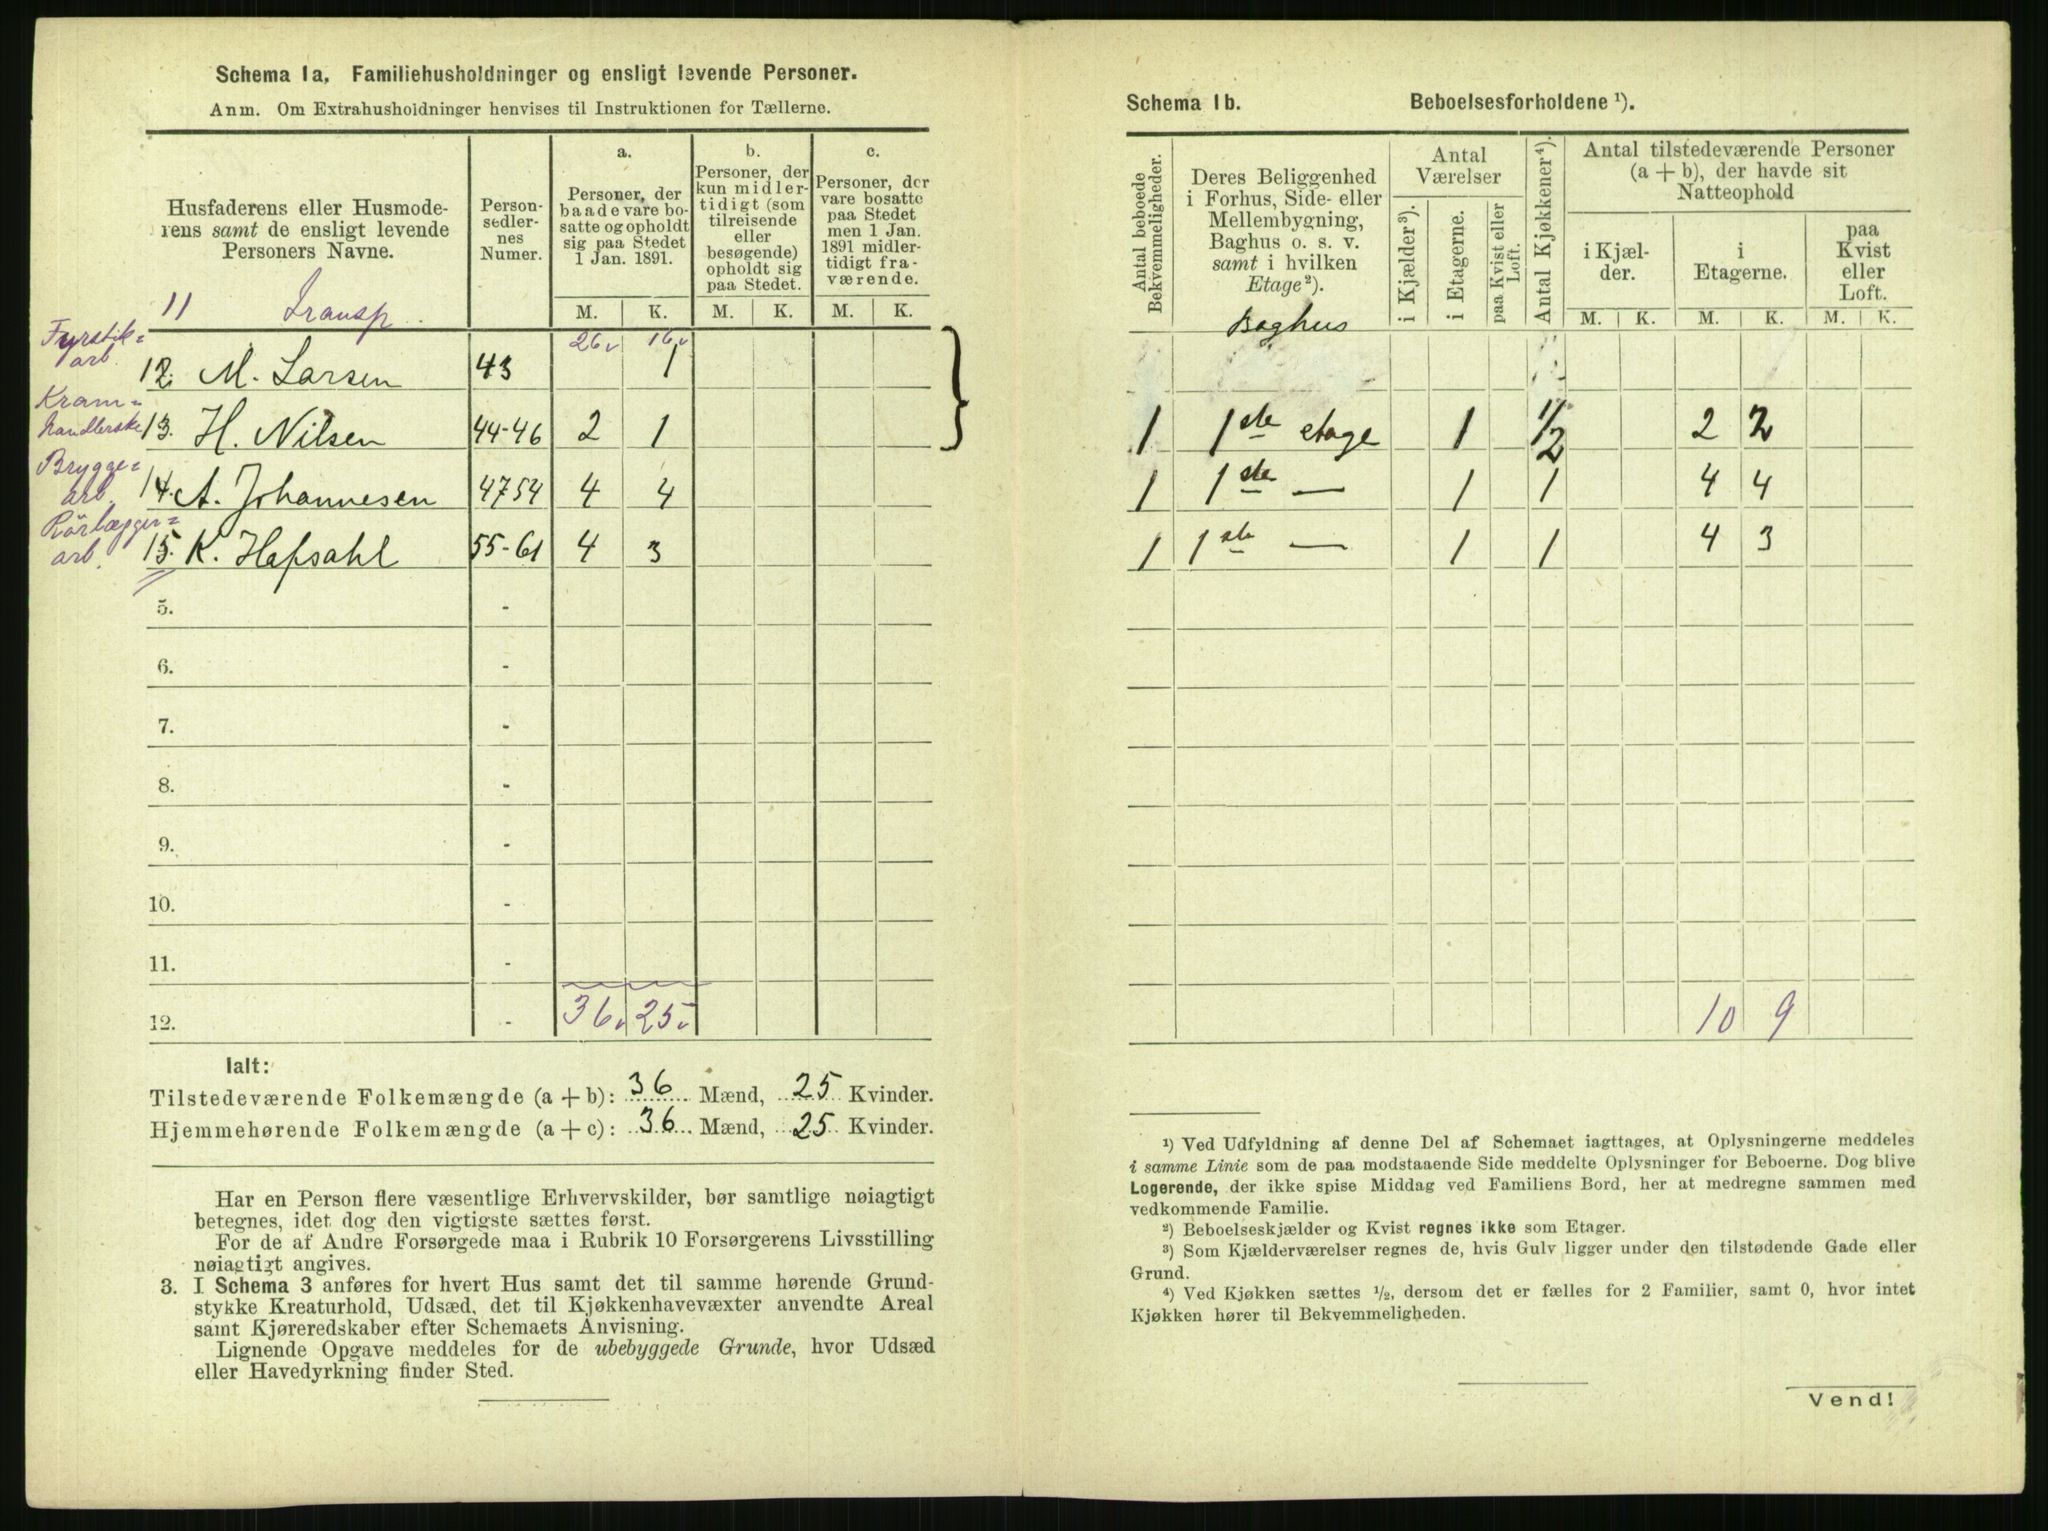 Schema 1a. Familiehusholdninger og ensligt levende Personer.
Anm. Om Extrahusholdninger henvises til Instruktionen for Tællerne.
Husfaderens eller Husmoderens samt de ensligt levende Personers Navne.
Personsedlernes Numer.
a.
Personer, der baade vare bosatte og opholdt sig paa Stedet 1 Jan. 1891.
b.
Personer, der kun midlertidigt (som tilreisende eller besøgende) opholdt sig paa Stedet.
c.
Personer, der vare bosatte paa Stedet men 1 Jan. 1891 midlertidigt fraværende.
M. K. M. K. M. K.
11 Transp. 26 16
Fyrstik=arb. 12. M. Larsen 43 1
Kramhandlerske 13. H. Nilsen 44-46 2 1
Brygge=arb. 14. A. Johannesen 47 54 4 4
Rörlægger=arb. 15. K. Hafsahl 55-61 4 3
5. -
6. -
7. -
8. -
9. -
10. -
11. -
12. - 36 25
Ialt:
Tilstedeværende Folkemængde (a + b): 36 Mænd, 25 Kvinder.
Hjemmehørende Folkemængde (a + c): 36 Mænd, 25 Kvinder.
Har en Person flere væsentlige Erhvervskilder, bør samtlige nøiagtigt
betegnes, idet dog den vigtigste sættes først.
For de af Andre Forsørgede maa i Rubrik 10 Forsørgerens Livsstilling
nøiagtigt angives.
3. I Schema 3 anføres for hvert Hus samt det til samme hørende Grund-
stykke Kreaturhold, Udsæd, det til Kjøkkenhavevæxter anvendte Areal
samt Kjøreredskaber efter Schemaets Anvisning.
Lignende Opgave meddeles for de ubebyggede Grunde, hvor Udsæd
eller Havedyrkning finder Sted.
Schema 1b. Beboelsesforholdene ¹).
Antal beboede Bekvemmeligheder.
Deres Beliggenhed i Forhus, Side- eller Mellembygning, Baghus o. s. v. samt i hvilken Etage ²).
Antal Værelser
i Kjælder ³).
i Etagerne.
paa Kvist eller Loft.
Antal Kjøkkener ⁴).
Antal tilstedeværende Personer (a + b), der havde sit Natteophold
i Kjælder.
i Etagerne.
paa Kvist eller Loft.
M. K. M. K. M. K.
Baghus
1 1ste etage 1 1/2 2 2
1 1ste — 1 1 4 4
1 1ste — 1 1 4 3
10 9
¹) Ved Udfyldning af denne Del af Schemaet iagttages, at Oplysningerne meddeles
i samme Linie som de paa modstaaende Side meddelte Oplysninger for Beboerne. Dog blive
Logerende, der ikke spise Middag ved Familiens Bord, her at medregne sammen med
vedkommende Familie.
²) Beboelseskjælder og Kvist regnes ikke som Etager.
³) Som Kjælderværelser regnes de, hvis Gulv ligger under den tilstødende Gade eller
Grund.
⁴) Ved Kjøkken sættes ½, dersom det er fælles for 2 Familier, samt 0, hvor intet
Kjøkken hører til Bekvemmeligheden.
Vend!